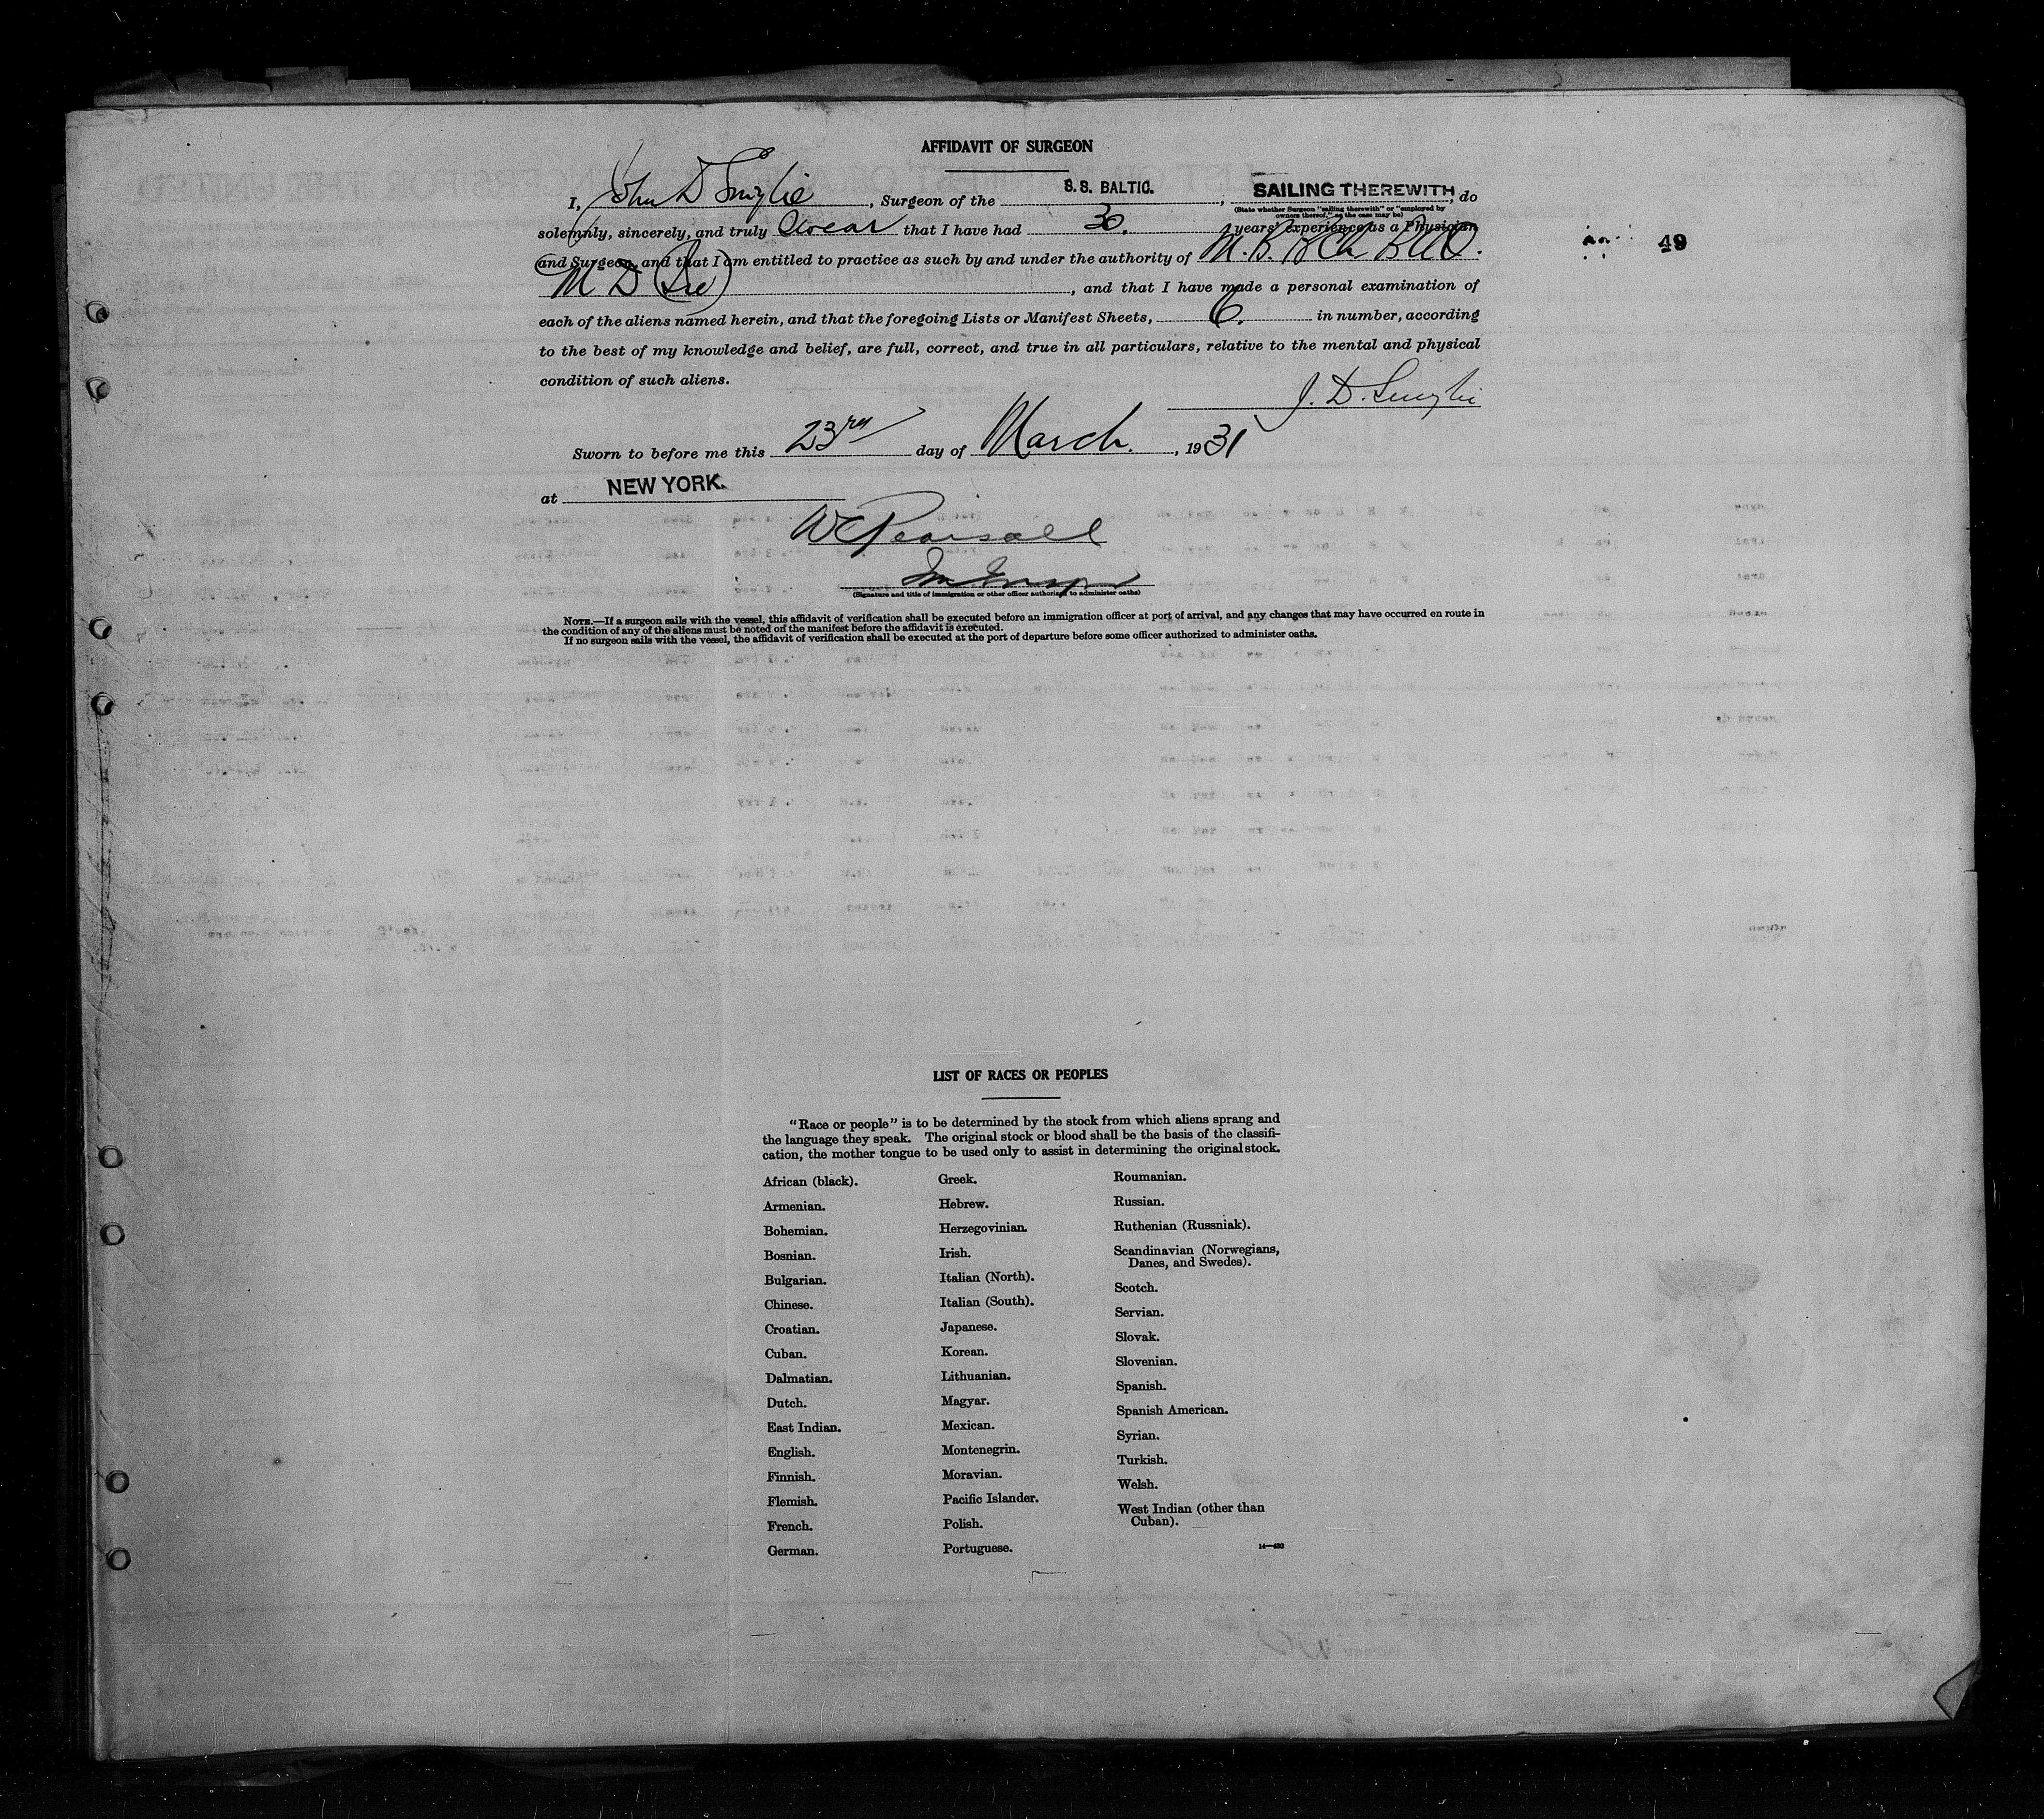 AFFIDAVIT OF SURGEON
I, John D , Surgeon of the S. S. BALTIC. , SAILING THEREWITH , do
(State whether Surgeon "sailing therewith" or "employed by
owners thereof," as the case may be)
solemnly, sincerely, and truly swear that I have had 30. years' experience as a Physician
and Surgeon, and that I am entitled to practice as such by and under the authority of M.B. BCh BAO.
M D , and that I have made a personal examination of
each of the aliens named herein, and that the foregoing Lists or Manifest Sheets, 6. in number, according
to the best of my knowledge and belief, are full, correct, and true in all particulars, relative to the mental and physical
condition of such aliens.
J. D.
Sworn to before me this 23rd day of March. , 1931
at NEW YORK.
W C Pearsall
Im Inspr
(Signature and title of immigration or other officer authorized to administer oaths)
NOTE.—If a surgeon sails with the vessel, this affidavit of verification shall be executed before an immigration officer at port of arrival, and any changes that may have occurred en route in
the condition of any of the aliens must be noted on the manifest before the affidavit is executed.
If no surgeon sails with the vessel, the affidavit of verification shall be executed at the port of departure before some officer authorized to administer oaths.
49
LIST OF RACES OR PEOPLES
"Race or people" is to be determined by the stock from which aliens sprang and
the language they speak. The original stock or blood shall be the basis of the classifi-
cation, the mother tongue to be used only to assist in determining the original stock.
African (black).
Armenian.
Bohemian.
Bosnian.
Bulgarian.
Chinese.
Croatian.
Cuban.
Dalmatian.
Dutch.
East Indian.
English.
Finnish.
Flemish.
French.
German.
Greek.
Hebrew.
Herzegovinian.
Irish.
Italian (North).
Italian (South).
Japanese.
Korean.
Lithuanian.
Magyar.
Mexican.
Montenegrin.
Moravian.
Pacific Islander.
Polish.
Portuguese.
Roumanian.
Russian.
Ruthenian (Russniak).
Scandinavian (Norwegians,
Danes, and Swedes).
Scotch.
Servian.
Slovak.
Slovenian.
Spanish.
Spanish American.
Syrian.
Turkish.
Welsh.
West Indian (other than
Cuban).